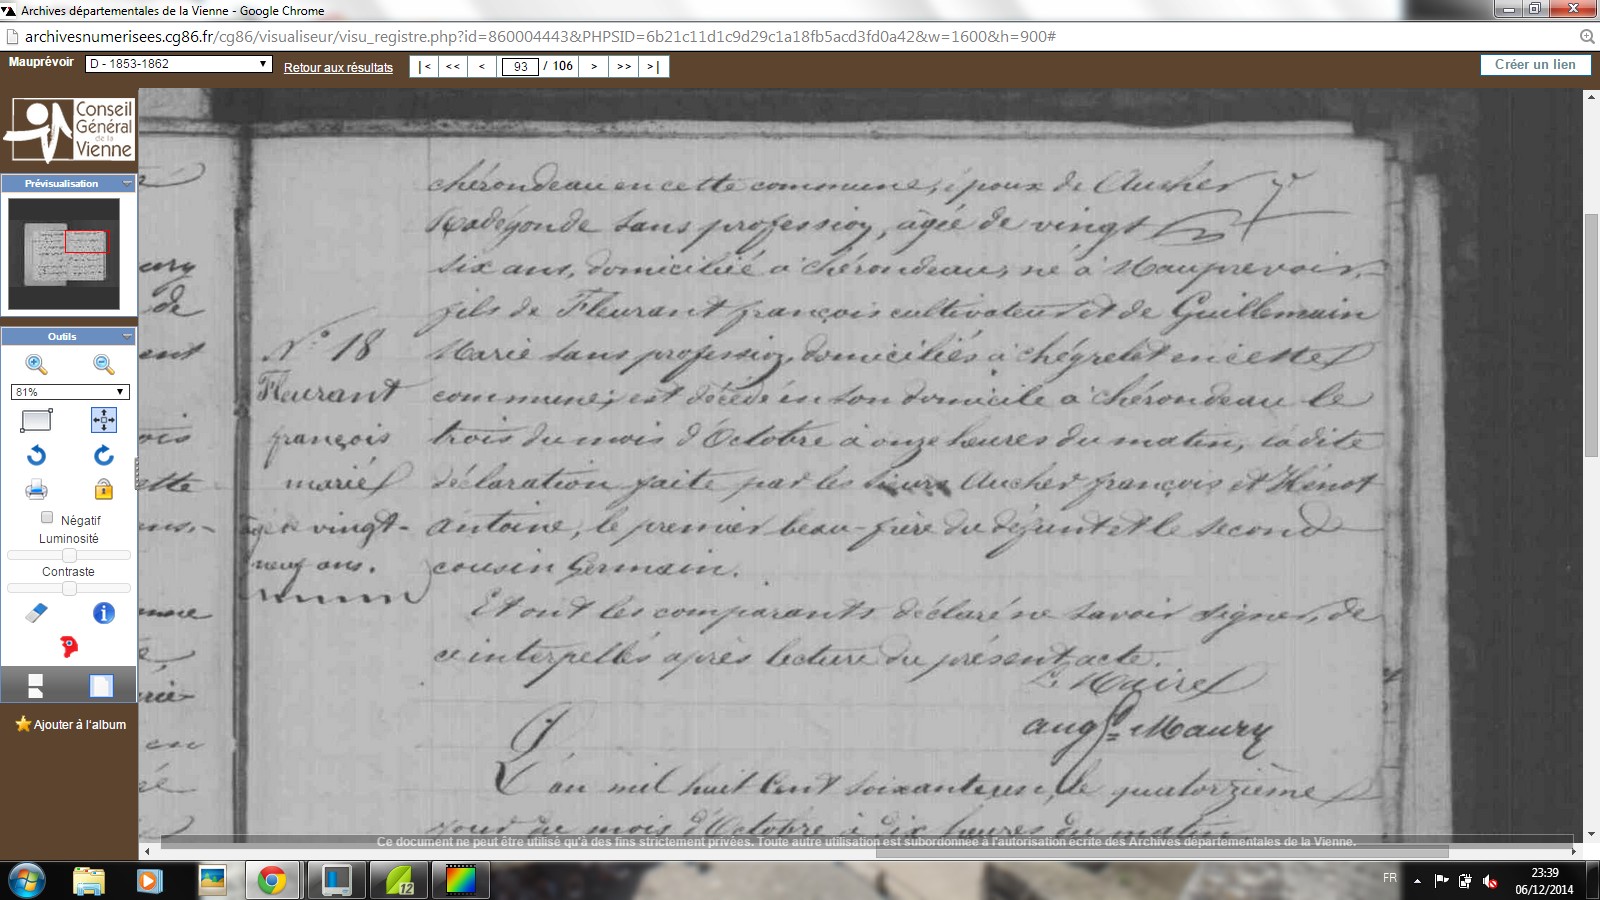 Archives départementales de la Vienne - Google Chrome
archivesnumerisees.cg86.fr/cg86/visualiseur/visu_registre.php?id=860004443&PHPSID=6b21c11d1c9d29c1a18fb5acd3fd0a42&w=1600&h=900#
Mauprévoir D - 1853-1862 Retour aux résultats |< << < 93 / 106 > >> >| Créer un lien
Conseil
Général
de la
Vienne
Prévisualisation
Outils
81%
Négatif
Luminosité
Contraste
Ajouter à l'album
chérondeau en cette commune, époux de Aucher
Radégonde sans profession, âgée de vingt
six ans, domiciliée à chérondeau, né à Mauprevoir,
fils de Fleurant françois cultivateur et de Guillemain
Marie sans profession, domiciliés à chégrelet en cette
commune; est décédé en son domicile à chérondeau le
trois du mois d'Octobre à onze heures du matin, ladite
déclaration faite par les sieurs Aucher françois et Hénot
antoine, le premier beau-frère du défunt et le second
cousin Germain.
Et ont les comparants déclaré ne savoir signer, de
ce interpellés après lecture du présent acte.
Le Maire
augte Maury
N.° 18
Fleurant
françois
marié
âgé de vingt-
neuf ans.
L'an mil huit Cent soixante un, le quatorzième
jour du mois d'Octobre à dix heures du matin
Ce document ne peut être utilisé qu'à des fins strictement privées. Toute autre utilisation est subordonnée à l'autorisation écrite des Archives départementales de la Vienne.
12
FR
23:39
06/12/2014